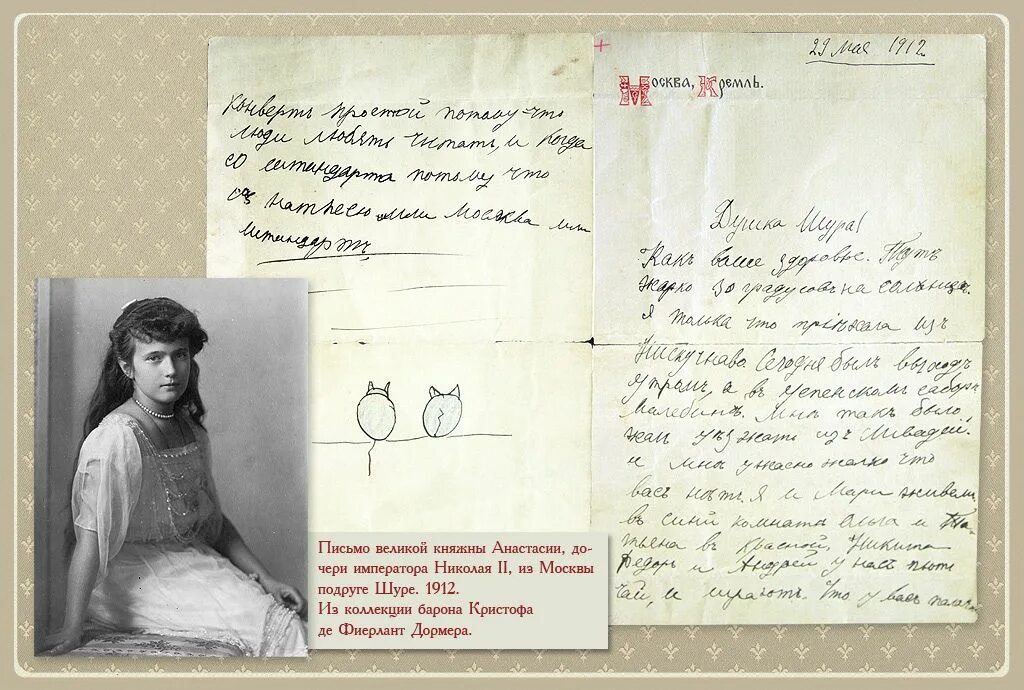 Конвертъ простой потому что
люди любятъ читать, и когда
со штандарта потому что
или Москва или
Штандартъ
29 Мая 1912
Москва, Кремль.
Душка Шура!
Какъ ваше здоровье. Тутъ
жарко 30 градусовъ на солънце.
Я толька что пріѣжала изъ
Нискучнаво. Сегодня былъ выходъ
утрамъ, а въ Успенскамъ саборѣ
Малебинъ. Мнѣ такъ было
жал уѣзжать изъ Ливадей.
и мнѣ ужасно жалко что
васъ нѣтъ. Я и Мари живемъ
въ синй комнатѣ Ольга и Та-
тьяна въ красной, Никита
Федоръ и Андрей у насъ пютъ
чай, и играютъ. Что у васъ
Письмо великой княжны Анастасии, до-
чери императора Николая II, из Москвы
подруге Шуре. 1912.
Из коллекции барона Кристофа
де Фиерлант Дормера.